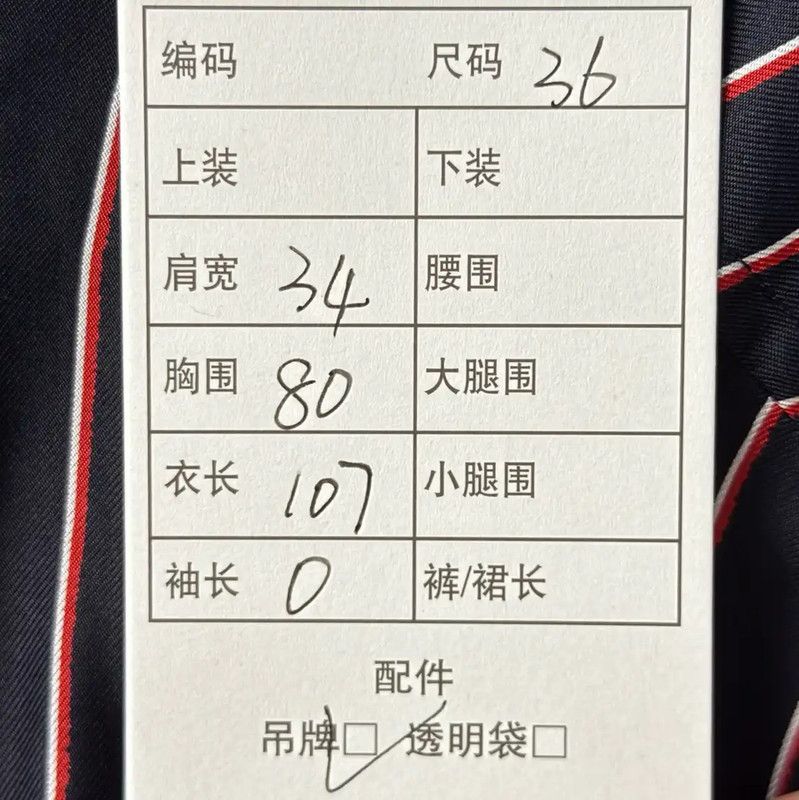 编码 尺码 36
上装 下装
肩宽 34 腰围
胸围 80 大腿围
衣长 107 小腿围
袖长 0 裤/裙长
配件
吊牌□ 透明袋□